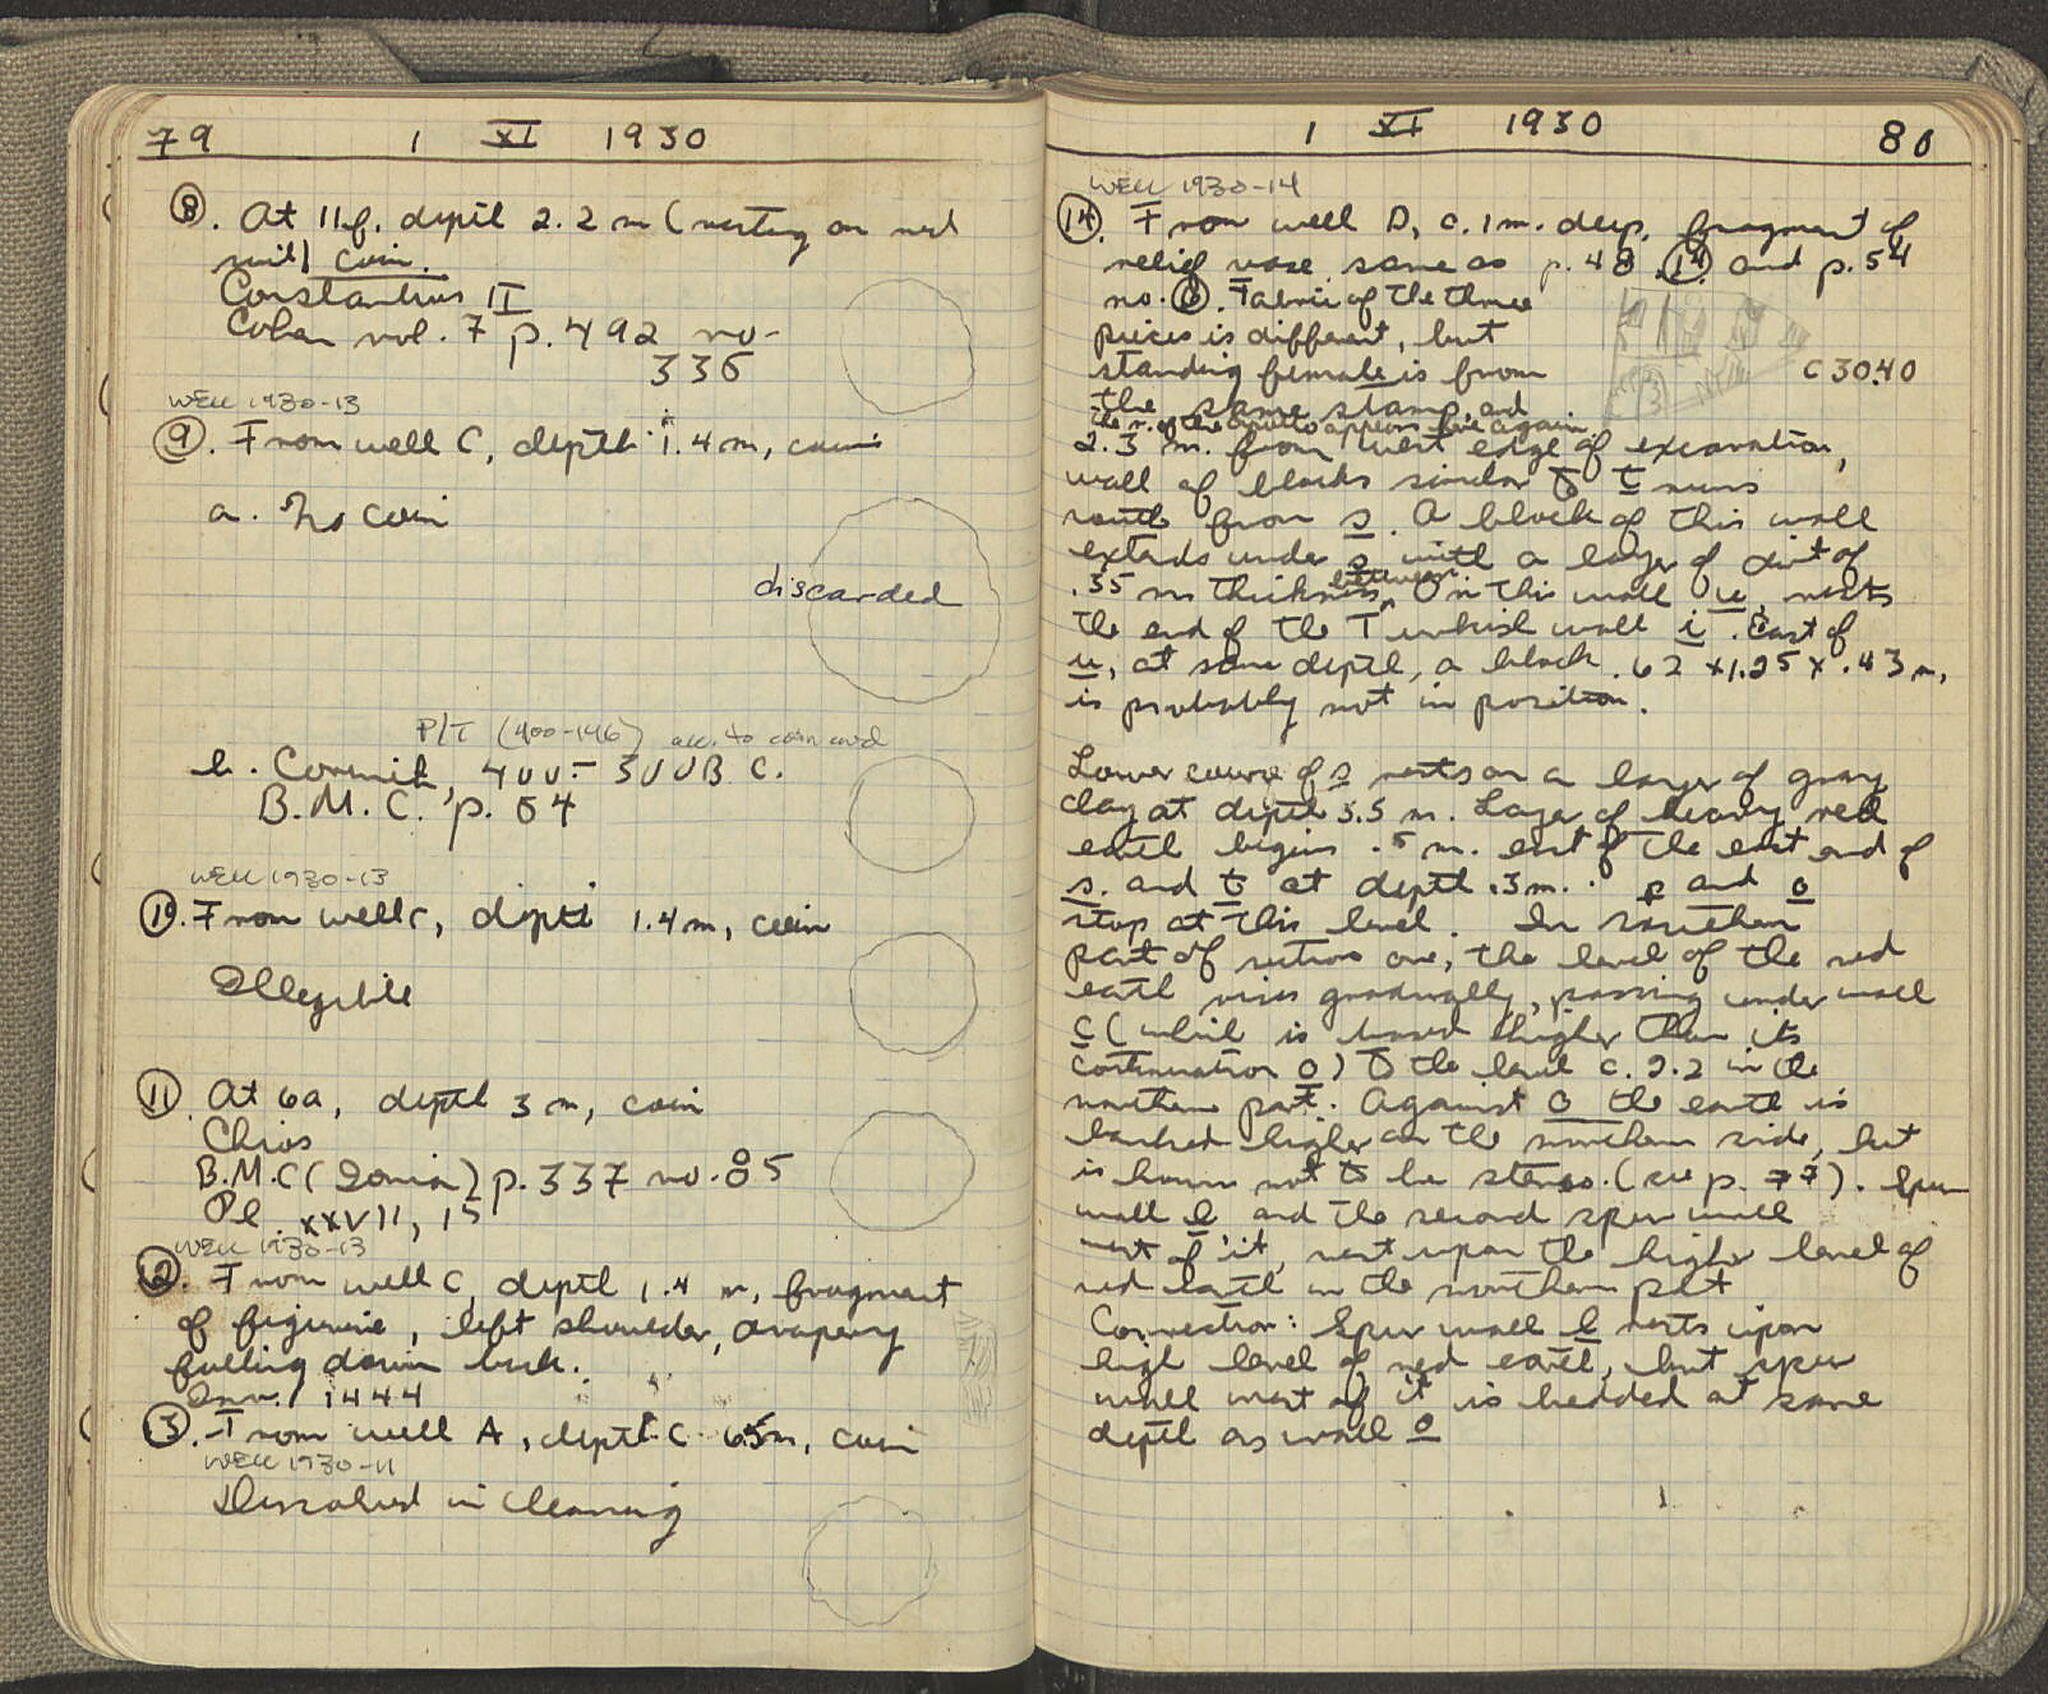 79 1 XI 1930
⑧. At 11f. depth 2.2 m (resting on red
soil) coin.
Constantius II
Cohen vol. 7 p. 492 no.
335
WELL 1930-13
⑨. From well C, depth 1.4 m, coins
a. No coin
discarded
P/T (400-146) acc. to coin card
b. Corinth, 400-300 B.C.
B.M.C. p. 54
WELL 1930-13
⑩. From well C, depth 1.4 m, coin
Illegible
⑪. At 6a, depth 3 m, coin
Chios
B.M.C (Ionia) p. 337 no. 85
Pl. XXVII, 15
WELL 1930-13
⑫. From well C, depth 1.4 m, fragment
of figurine, left shoulder, drapery
falling down back.
Inv. 1444
⑬. From well A, depth c. 6.5m, coin
WELL 1930-11
Dissolved in cleaning
1 XI 1930 80
WELL 1930-14
⑭. From well D, c. 1 m. deep, fragment of
relief vase same as p. 48 ⑭ and p. 54
no. ⑥. Fabric of the three
pieces is different, but
standing female is from
C 30.40
the same stamp, and
the r. of the grotto appears here again.
2.3 m. from west edge of excavation,
wall of blocks similar to t runs
south from s. A block of this wall
extends under s with a layer of dirt of
.35 m thickness between. On this wall u, rests
the end of the Turkish wall i. East of
u, at same depth, a block .62 x 1.25 x .43 m,
is probably not in position.
Lower course of s rests on a layer of gray
clay at depth 3.5 m. Layer of heavy red
earth begins .5 m. east of the east end of
s. and t at depth .3m. p and o
stop at this level. In southern
part of section one, the level of the red
earth rises gradually, passing under wall
c (which is based higher than its
continuation o) to the level c. 2.2 in the
northern part. Against o the earth is
banked higher on the northern side, but
is known not to be stereo. (see p. 77). Spur
wall l and the second spur wall
west of it, rest upon the higher level of
red earth in the northern part
Correction: Spur wall l rests upon
high level of red earth, but spur
wall west of it is bedded at same
depth as wall o